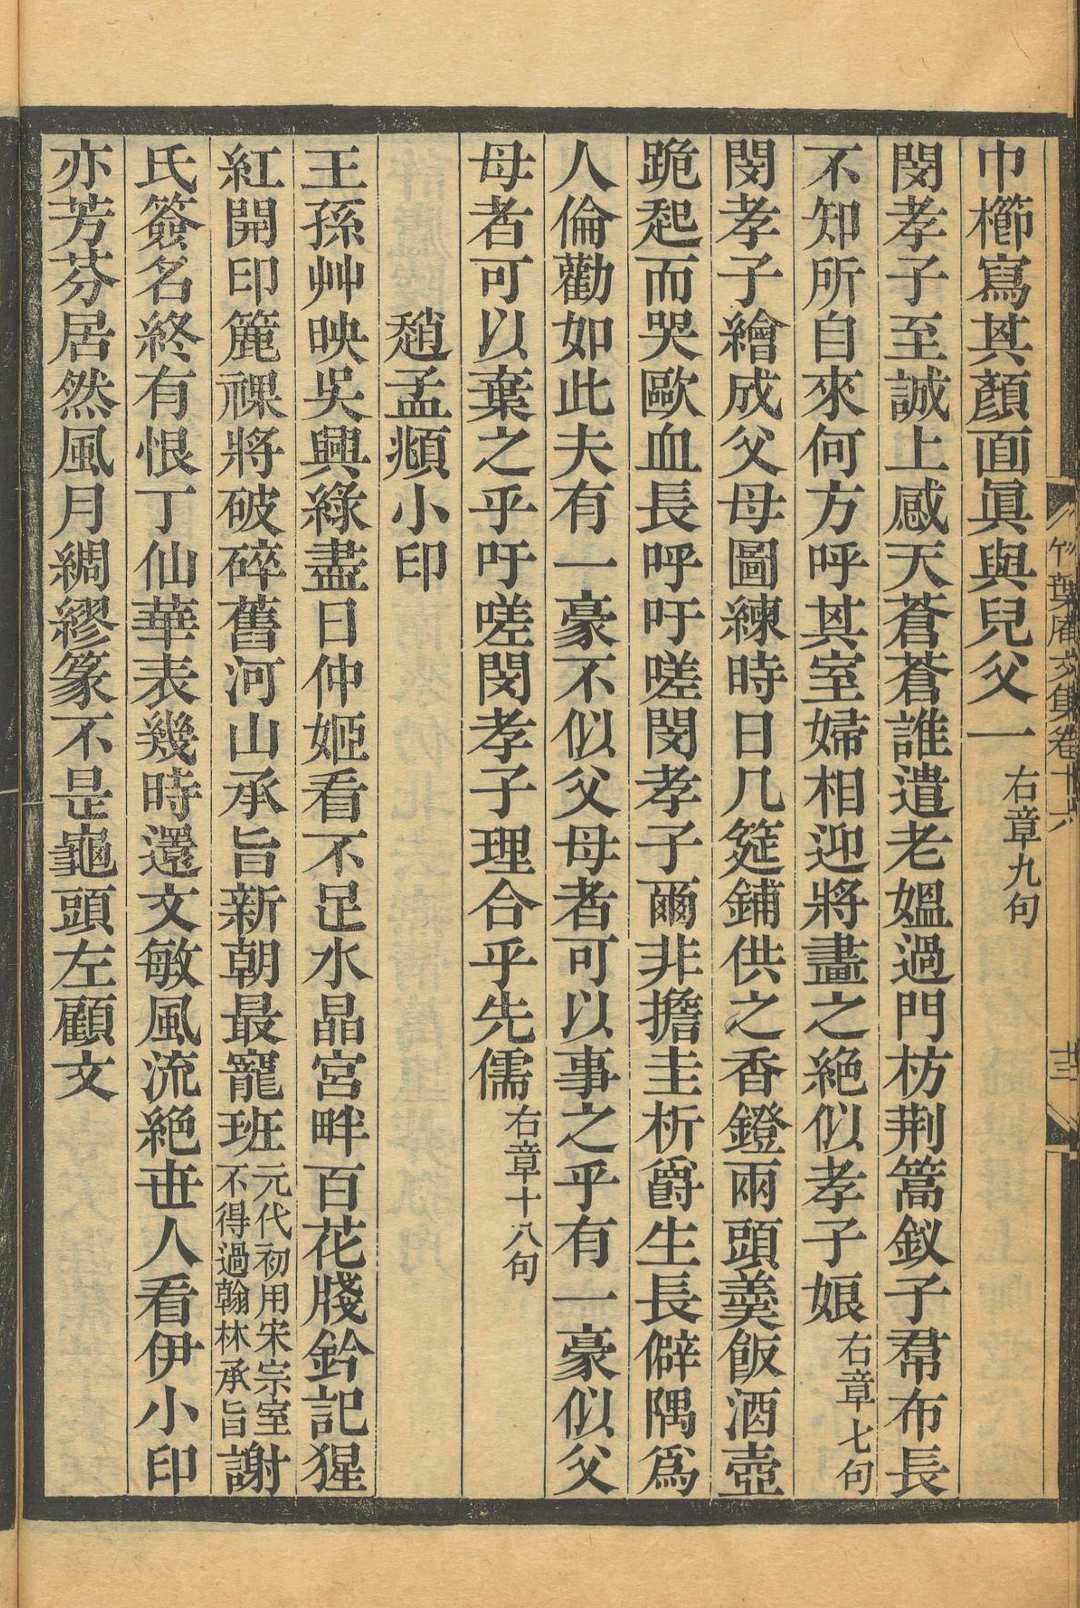 竹葉庵文集卷十六
廿三
巾櫛寫其顏面真與兒父一右章九句
閔孝子至誠上感天蒼蒼誰遣老媼過門枋荊篙釵子帬布長
不知所自來何方呼其室婦相迎將盡之絕似孝子娘右章七句
閔孝子繪成父母圖練時日几筵鋪供之香鐙兩頭羹飯酒壺
跪起而哭歐血長呼吁嗟閔孝子爾非擔圭析爵生長僻隅爲
人倫勸如此夫有一豪不似父母者可以事之乎有一豪似父
母者可以棄之乎吁嗟閔孝子理合乎先儒右章十八句
趙孟頫小印
王孫艸映吳興綠盡日仲姬看不足水晶宮畔百花牋鈐記猩
紅開印簏祼將破碎舊河山承旨新朝最寵班元代初用宋宗室不得過翰林承旨謝
氏簽名終有恨丁仙華表幾時還文敏風流絕世人看伊小印
亦芳芬居然風月綢繆篆不是龜頭左顧文